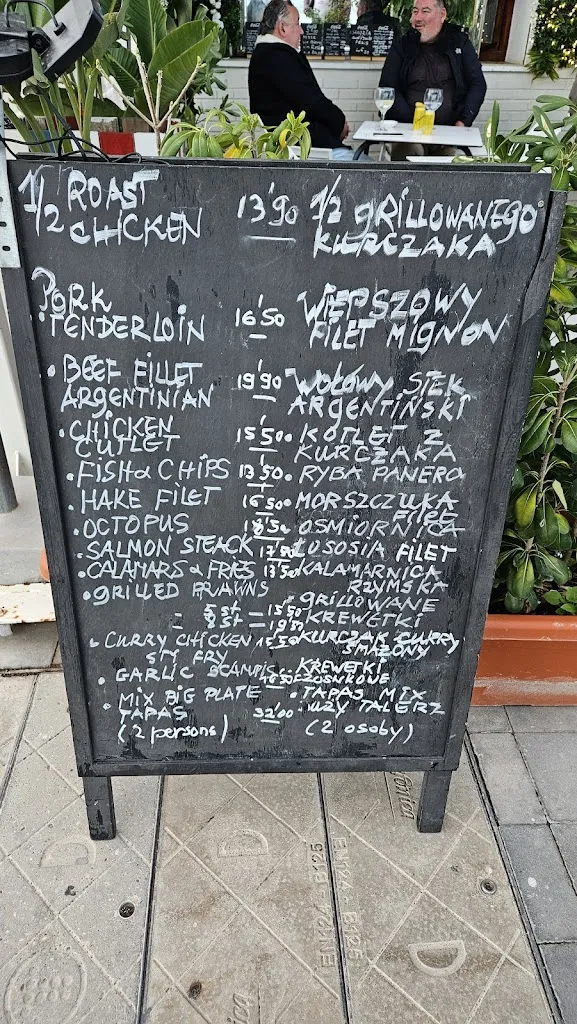 1/2 ROAST CHICKEN 13'90 1/2 GRILLOWANEGO KURCZAKA
PORK TENDERLOIN 16'50 WIEPSZOWY FILET MIGNON
• BEEF FILLET ARGENTINIAN 19'90 WOŁOWY STEK ARGENTIŃSKI
• CHICKEN CUTLET 15'50 • KOTLET Z KURCZAKA
• FISH & CHIPS 13'50 • RYBA PANERO
• HAKE FILET 16'50 • MORSZCZUKA FILE
• OCTOPUS 18'50 OSMIORNICA
• SALMON STEACK ŁOSOSIA FILET
• CALAMARS & FRIES 13'50 KALAMARNICA RZYMSKA
• GRILLED PRAWNS GRILLOWANE KREWETKI
5 st = 15'50
8 st = 19'50
• CURRY CHICKEN STY FRY 15'50 KURCZAK CURRY SMAZONY
• GARLIC SCAMPIS KREWETKI CZOSNKONE
• MIX BIG PLATE TAPAS 32'00 • TAPAS MIX DUZY TALERZ
(2 persons) (2 osoby)
EN124 B125
D